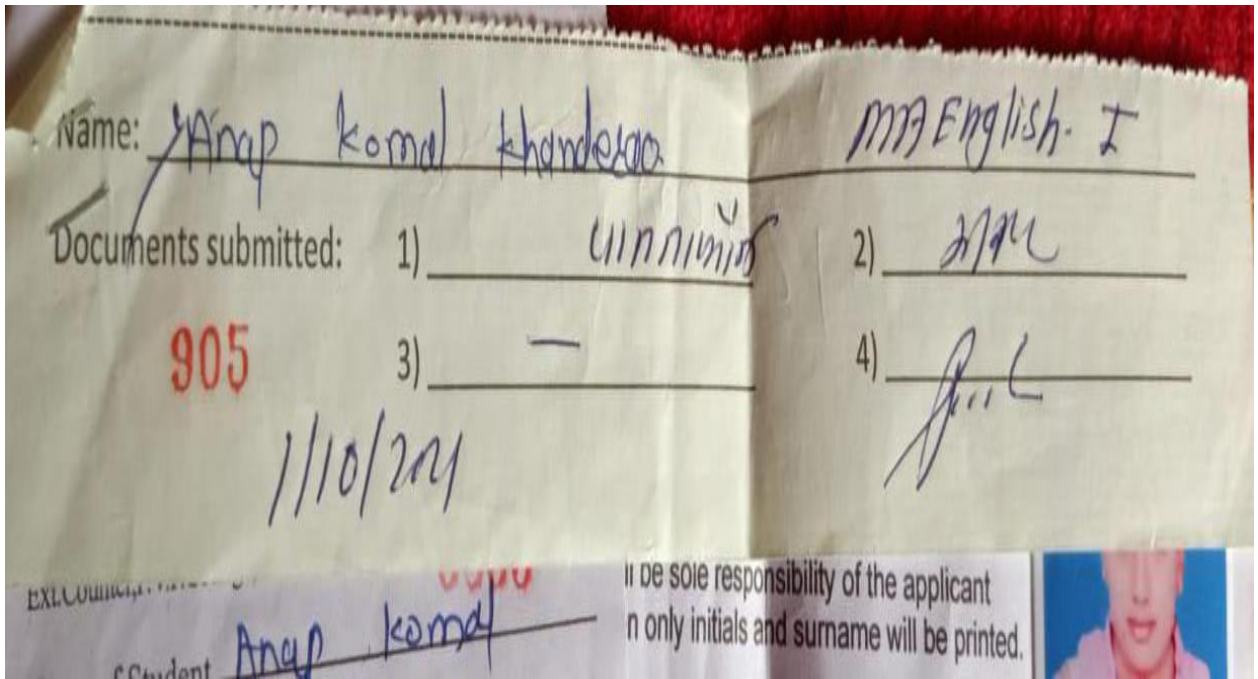 Name: Anap Komal Khanderao MA English. I
Documents submitted: 1) 2)
905 3) — 4)
1/10/2021
ll be sole responsibility of the applicant
n only initials and surname will be printed.
Student Anap Komal